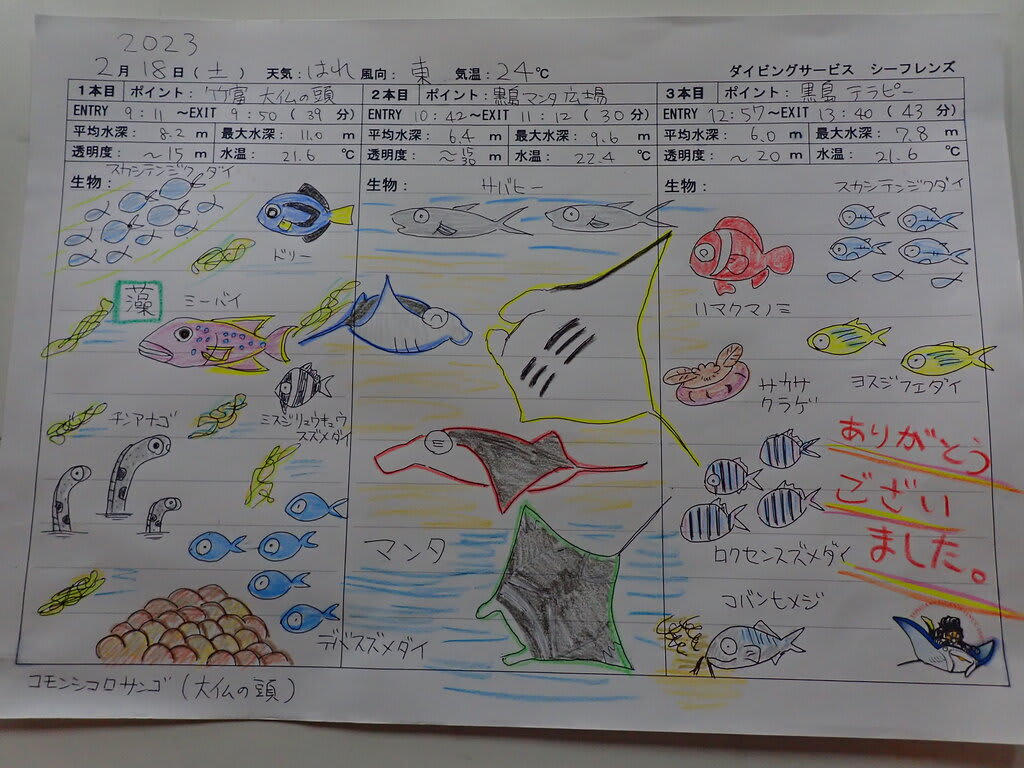 2023
2月18日(土) 天気:はれ 風向:東 気温:24℃ ダイビングサービス シーフレンズ
1本目 ポイント:竹富 大仏の頭
ENTRY 9:11 ~EXIT 9:50 (39 分)
平均水深: 8.2 m 最大水深: 11.0 m
透明度: ~15 m 水温: 21.6 ℃
生物:
スカシテンジクダイ
ドリー
藻
ミーバイ
チンアナゴ
ミスジリュウキュウ
スズメダイ
デバスズメダイ
コモンシコロサンゴ(大仏の頭)
2本目 ポイント:黒島マンタ広場
ENTRY 10:42~EXIT 11:12 (30 分)
平均水深: 6.4 m 最大水深: 9.6 m
透明度: ~15~30 m 水温: 22.4 ℃
生物:
サバヒー
マンタ
3本目 ポイント:黒島 テラピー
ENTRY 12:57~EXIT 13:40 (43 分)
平均水深: 6.0 m 最大水深: 7.8 m
透明度: ~20 m 水温: 21.6 ℃
生物:
スカシテンジクダイ
ハマクマノミ
サカサ
クラゲ
ヨスジフエダイ
ロクセンスズメダイ
コバンヒメジ
ありがとう
ござい
ました。